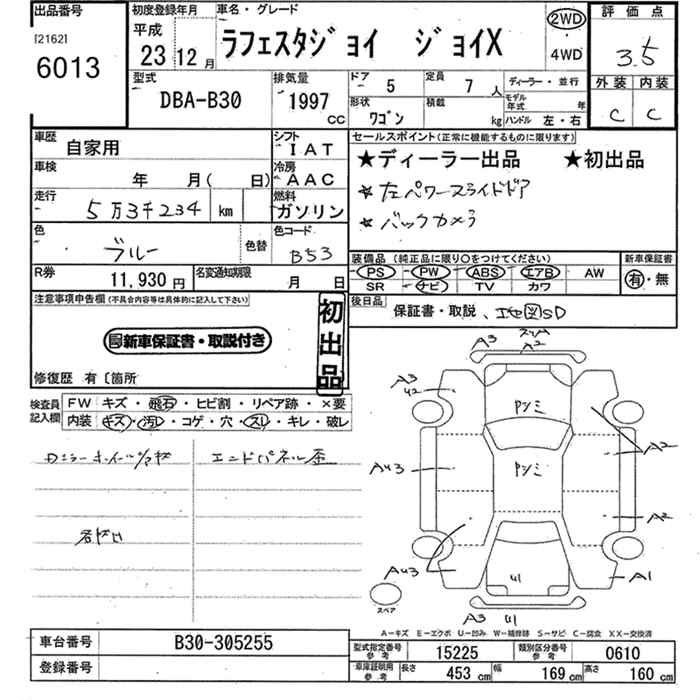 出品番号
[2162]
6013
初度登録年月
平成
23 12月
車名・グレード
ラフェスタジョイ ジョイX
2WD
4WD
評価点
3.5
外装 内装
C C
型式
DBA-B30
排気量
1997
CC
ドア 5
定員 7 人
ディーラー・並行
形状 ワゴン
積載 kg
モデル年式 年
ハンドル 左・右
車歴 自家用
シフト IAT
車検 年 月( 日)
冷房 AAC
走行 5万3千234 km
燃料 ガソリン
色 ブルー
色替
色コード B53
R券 11,930円
名変通知期限 月 日
セールスポイント(正常に機能するものに限ります)
★ディーラー出品 ★初出品
★左パワースライドドア
★バックカメラ
装備品(純正品に限り○をつけてください)
PS PW ABS エアB AW
SR ナビ TV カワ
新車保証書
有・無
後日品
保証書・取説、
注意事項申告欄(不具合内容等は具体的に記入して下さい)
新車保証書・取説付き
初出品
修復歴 有〔箇所
検査員記入欄
FW キズ・飛石・ヒビ割・リペア跡・×要
内装 キズ・汚レ・コゲ・穴・スレ・キレ・破レ
エンドパネル歪
A3
A2
A3
42
Pシミ
Pシミ
A2
AU3
A2
AU3
A1
U1
A3
U1
スペア
A−キズ E−エクボ U−凹み W−補修跡 S−サビ C−腐食 XX−交換済
車台番号 B30-305255
登録番号
型式指定番号 参考 15225
類別区分番号 参考 0610
車庫証明用 参考 長さ 453 cm 幅 169 cm 高さ 160 cm